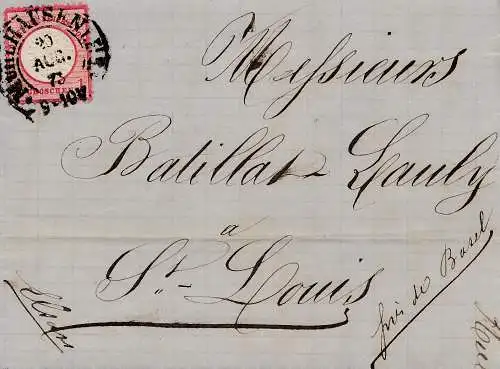 MÜLHAUSEN I. E.
20
AUG.
73
9-10V
1
GROSCHEN
Messieurs
Batillat Lauly
à
St. Louis
près de Basel
Elsass